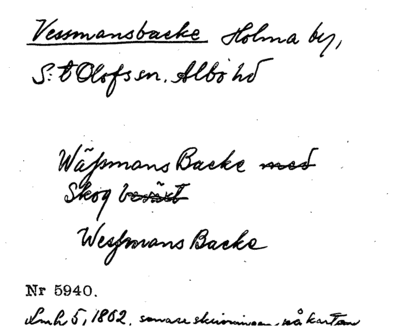 Vessmansbacke Holma by,
S:t Olofs sn. Albo hd
Wäſsmans Backe med
Skog beväxt
Weſsmans Backe
Nr 5940.
Lmh 5, 1862. senare skrivningen på kartan